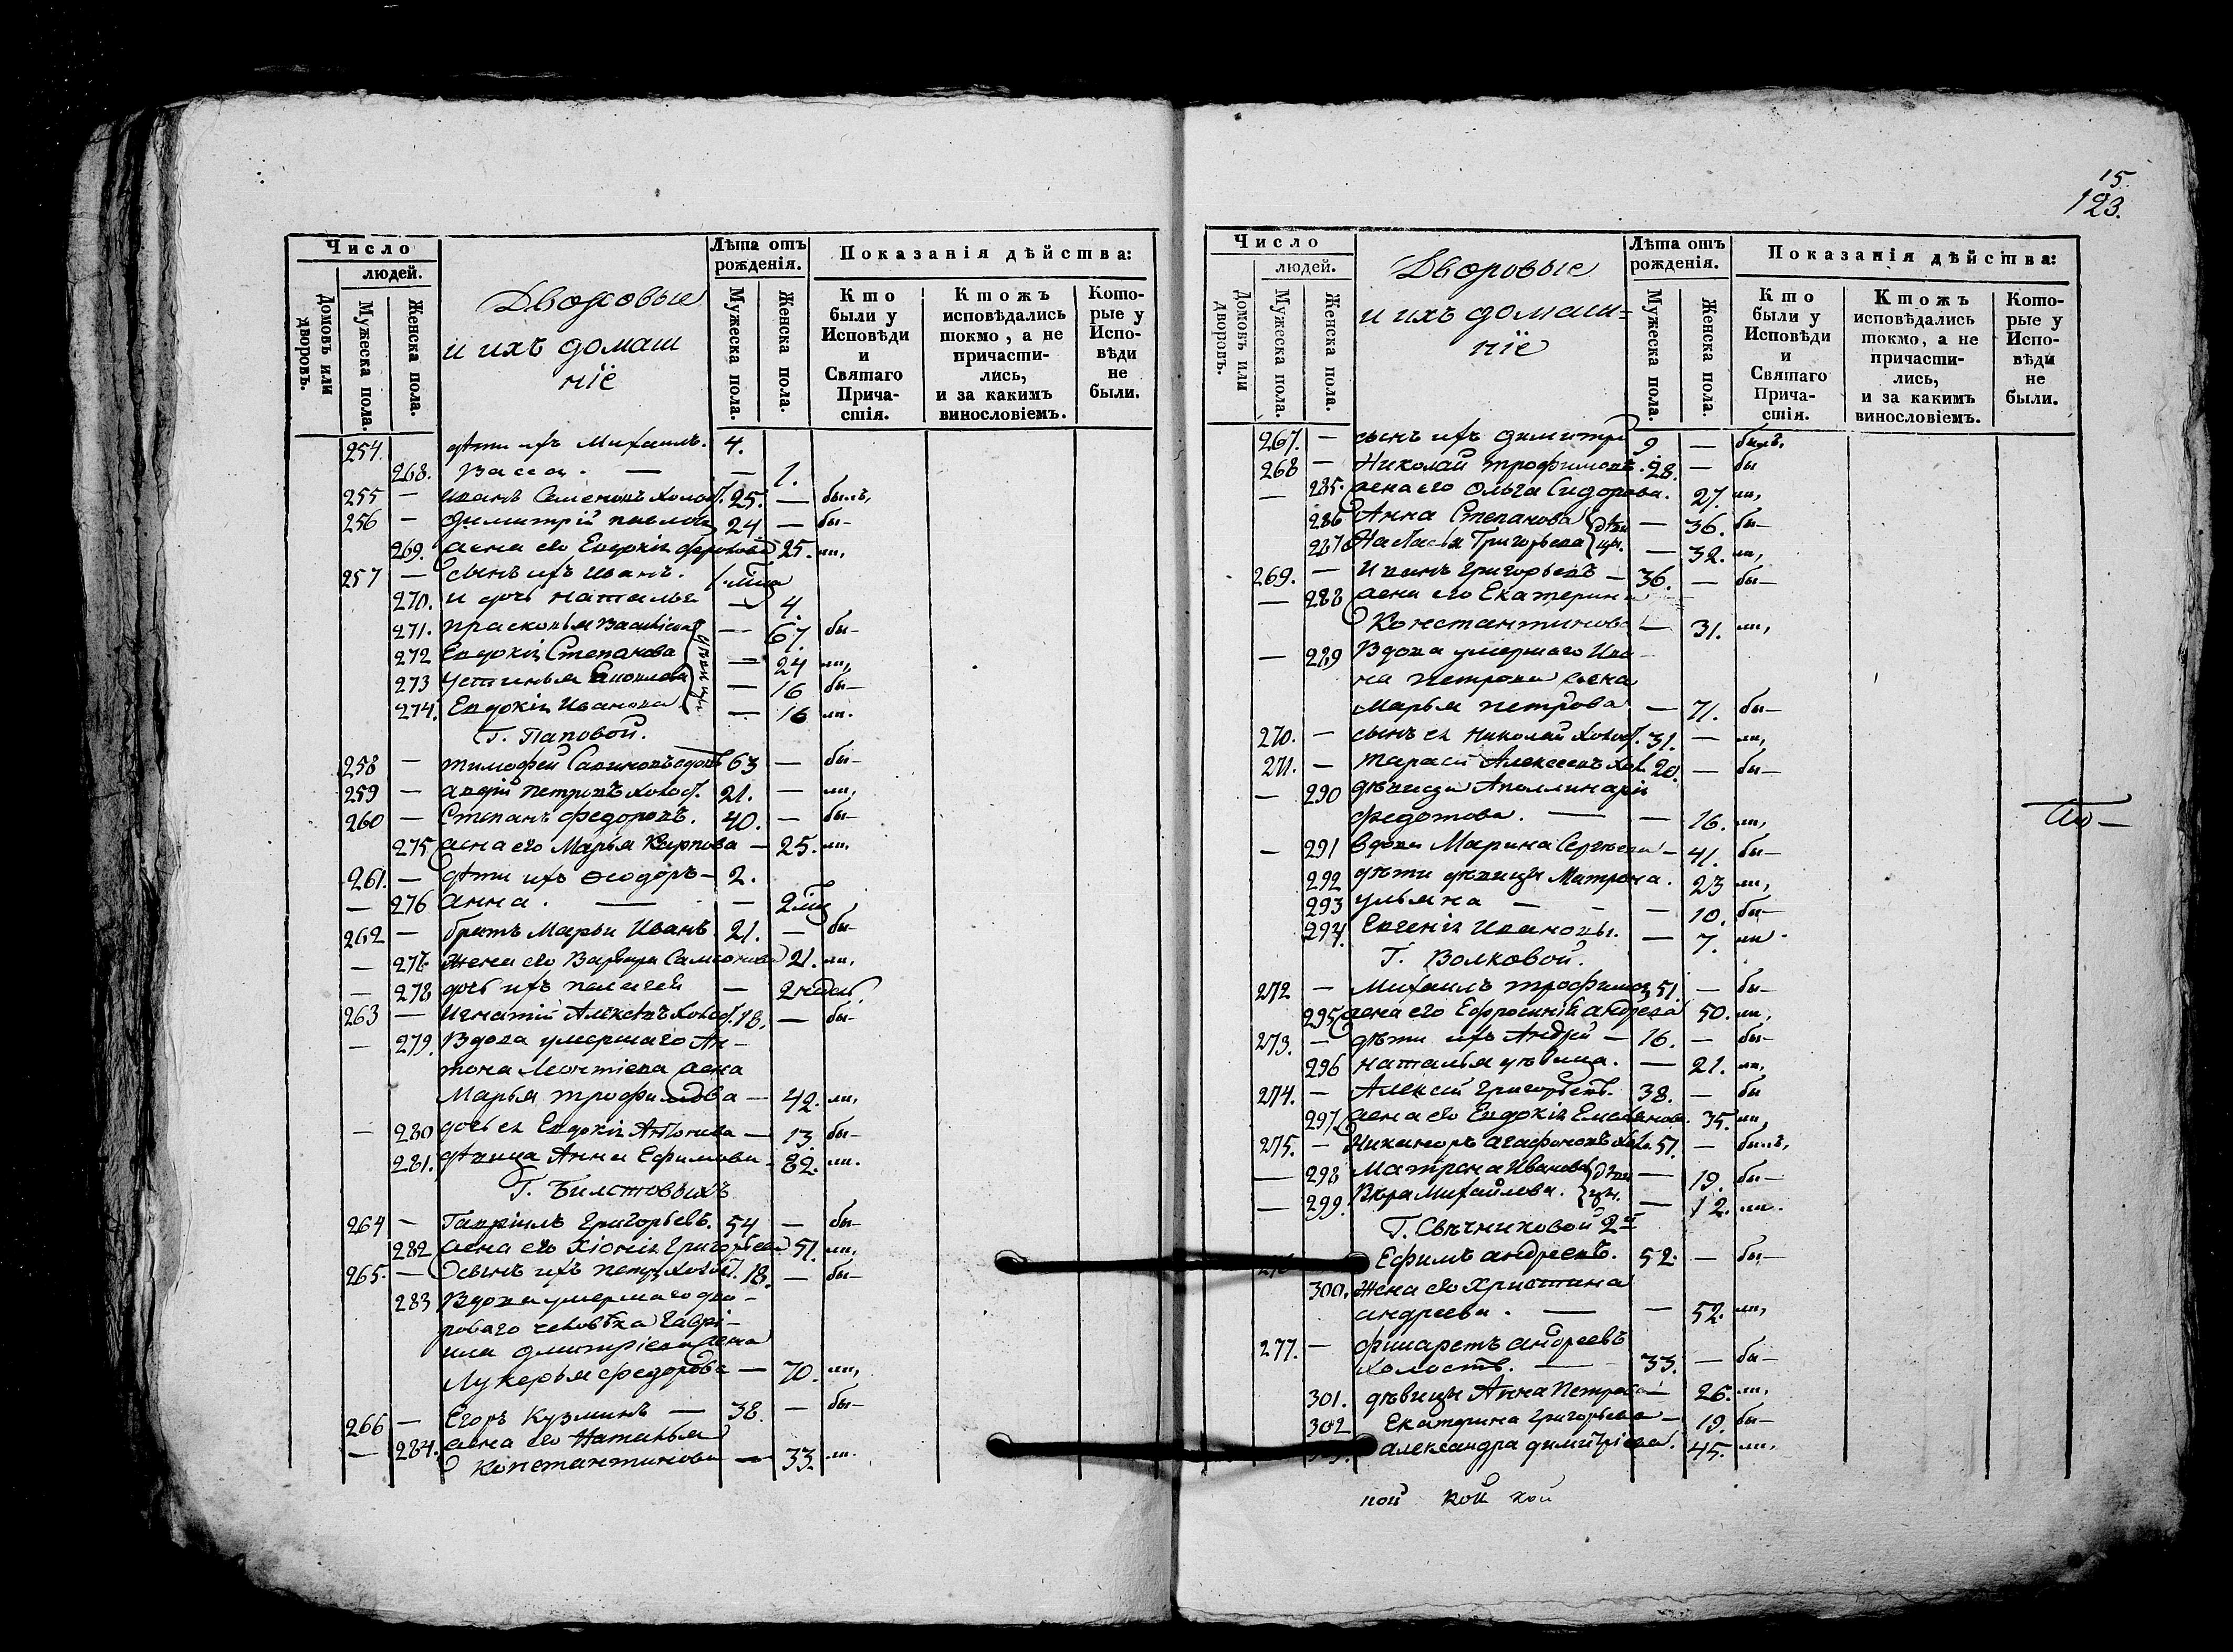 15.
123.
Число
людей.
Домовъ или дворовъ.
Мужеска пола.
Женска пола.
Дворовые
и ихъ домаш
ніе
Лѣта отъ рожденія.
Мужеска пола.
Женска пола.
Показанія дѣйства:
Кто были у Исповѣди и Святаго Прича-стія.
Ктожъ исповѣдались токмо, а не причасти-лись, и за какимъ винословіемъ.
Кото-рые у Испо-вѣди не были.
254. дѣти ихъ Михаилъ. 4.
268. Васса. — — 1.
255 — Иванъ Семеновъ холос. 25. — былъ,
256 — Димитрій Павловъ 24 — бы—
269. жена его Евдокія 25. ли,
257 — сынъ ихъ Иванъ. 1.
270. и дочь Наталья — 4.
271. Прасковья Васильева — 67. бы—
272 Евдокія Степанова — 24 ли,
273 Устинья — 16 бы—
274. Евдокія Иванова — 16 ли.
Г. Паповой.
258 — Тимофей Савиновъ вдовъ 63 — бы—
259 — Петровъ холос. 21. — ли,
260 — Степанъ Федоровъ. 40. — бы—
275 жена его Марья Карпова — 25. ли,
261. — дѣти ихъ Феодоръ — 2.
— 276 Анна. — — 2
262 — братъ Марьи Иванъ. 21. — бы—
— 277. Жена его Варвара Самсонова 21. ли,
— 278 дочь ихъ Пелагея — 2 недѣл.
263 — Игнатій Алексѣевъ холос. 18. — бы—
— 279. Вдова умершаго Ан—
тона Леонтіева жена
Марья Трофимова — 42. ли,
— 280 дочь ея Евдокія Антонова — 13 бы—
281. дѣвица Анна Ефимова 82. ли.
Г. Билстовыхъ
264 — Гавріилъ Григорьевъ. 54 — бы—
282 жена его Хіонія Григорьева 51. ли,
265. — сынъ ихъ Петръ холос. 18. — бы—
283 Вдова умершаго дво—
роваго человѣка Гаврі—
ила Дмитріева жена
Лукерья Федорова — 70. ли,
266 — Егоръ Кузминъ — 38. — бы—
— 284. жена его Наталья
Константинова — 33. ли.
Число
людей.
Домовъ или дворовъ.
Мужеска пола.
Женска пола.
Дворовые
и ихъ домаш=
ніе
Лѣта отъ рожденія.
Мужеска пола.
Женска пола.
Показанія дѣйства:
Кто были у Исповѣди и Святаго Прича-стія.
Ктожъ исповѣдались токмо, а не причасти-лись, и за какимъ винословіемъ.
Кото-рые у Испо-вѣди не были.
267. — сынъ ихъ Димитрій 9 — былъ,
268 — Николай Трофимовъ. 28. — бы
— 285. жена его Ольга Сидорова. 27. ли,
286 Анна Степанова — 36. бы—
287 Григорьева — 32. ли,
269. — Иванъ Григорьевъ — 36. — бы—
— 288 жена его Екатерина
Константинова — 31. ли,
— 289 Вдова умершаго Ива
на Петрова жена
Марья Петрова — 71. бы—
270. — сынъ ея Николай холос. 31. — ли,
271. — Тарасій Алексеевъ хол. 20. — бы—
— 290 дѣвица Аполлинарія
Федотова. — — 16. ли,
— 291 вдова Марина Сергѣева — 41. бы—
292 дѣти дѣвицы Матрона. 23 ли,
293 Ульяна — — — 10. бы—
294. Евгенія Ивановы. — 7. ли.
Г. Волковой.
272 — Михаилъ Трофимовъ 51. — бы—
295 жена его Ефросинія Андреева 50. ли,
273. — дѣти ихъ Андрей — 16. — бы—
296 Наталья дѣвица. — 21. ли,
274. — Алексѣй Григорьевъ. 38. — бы
297. жена его Евдокія Емельянова. 35. ли,
275. — Никаноръ Агафоновъ хол. 51. — былъ,
— 298 Матрена Иванова — 19. бы—
— 299. Вѣра Михайлова. — 12. ли.
Г. Свѣчниковой 2й
Ефимъ Андреевъ. 52. — бы—
300. Жена его Христина
Андреева. — — 52. ли,
277. — Филаретъ Андреевъ
холостъ. — 33. — бы—
301. дѣвицы Анна Петрова — 26. ли,
302 Екатерина Григорьева — 19. бы—
Александра Димитріева. 45. ли,
пой кой кой